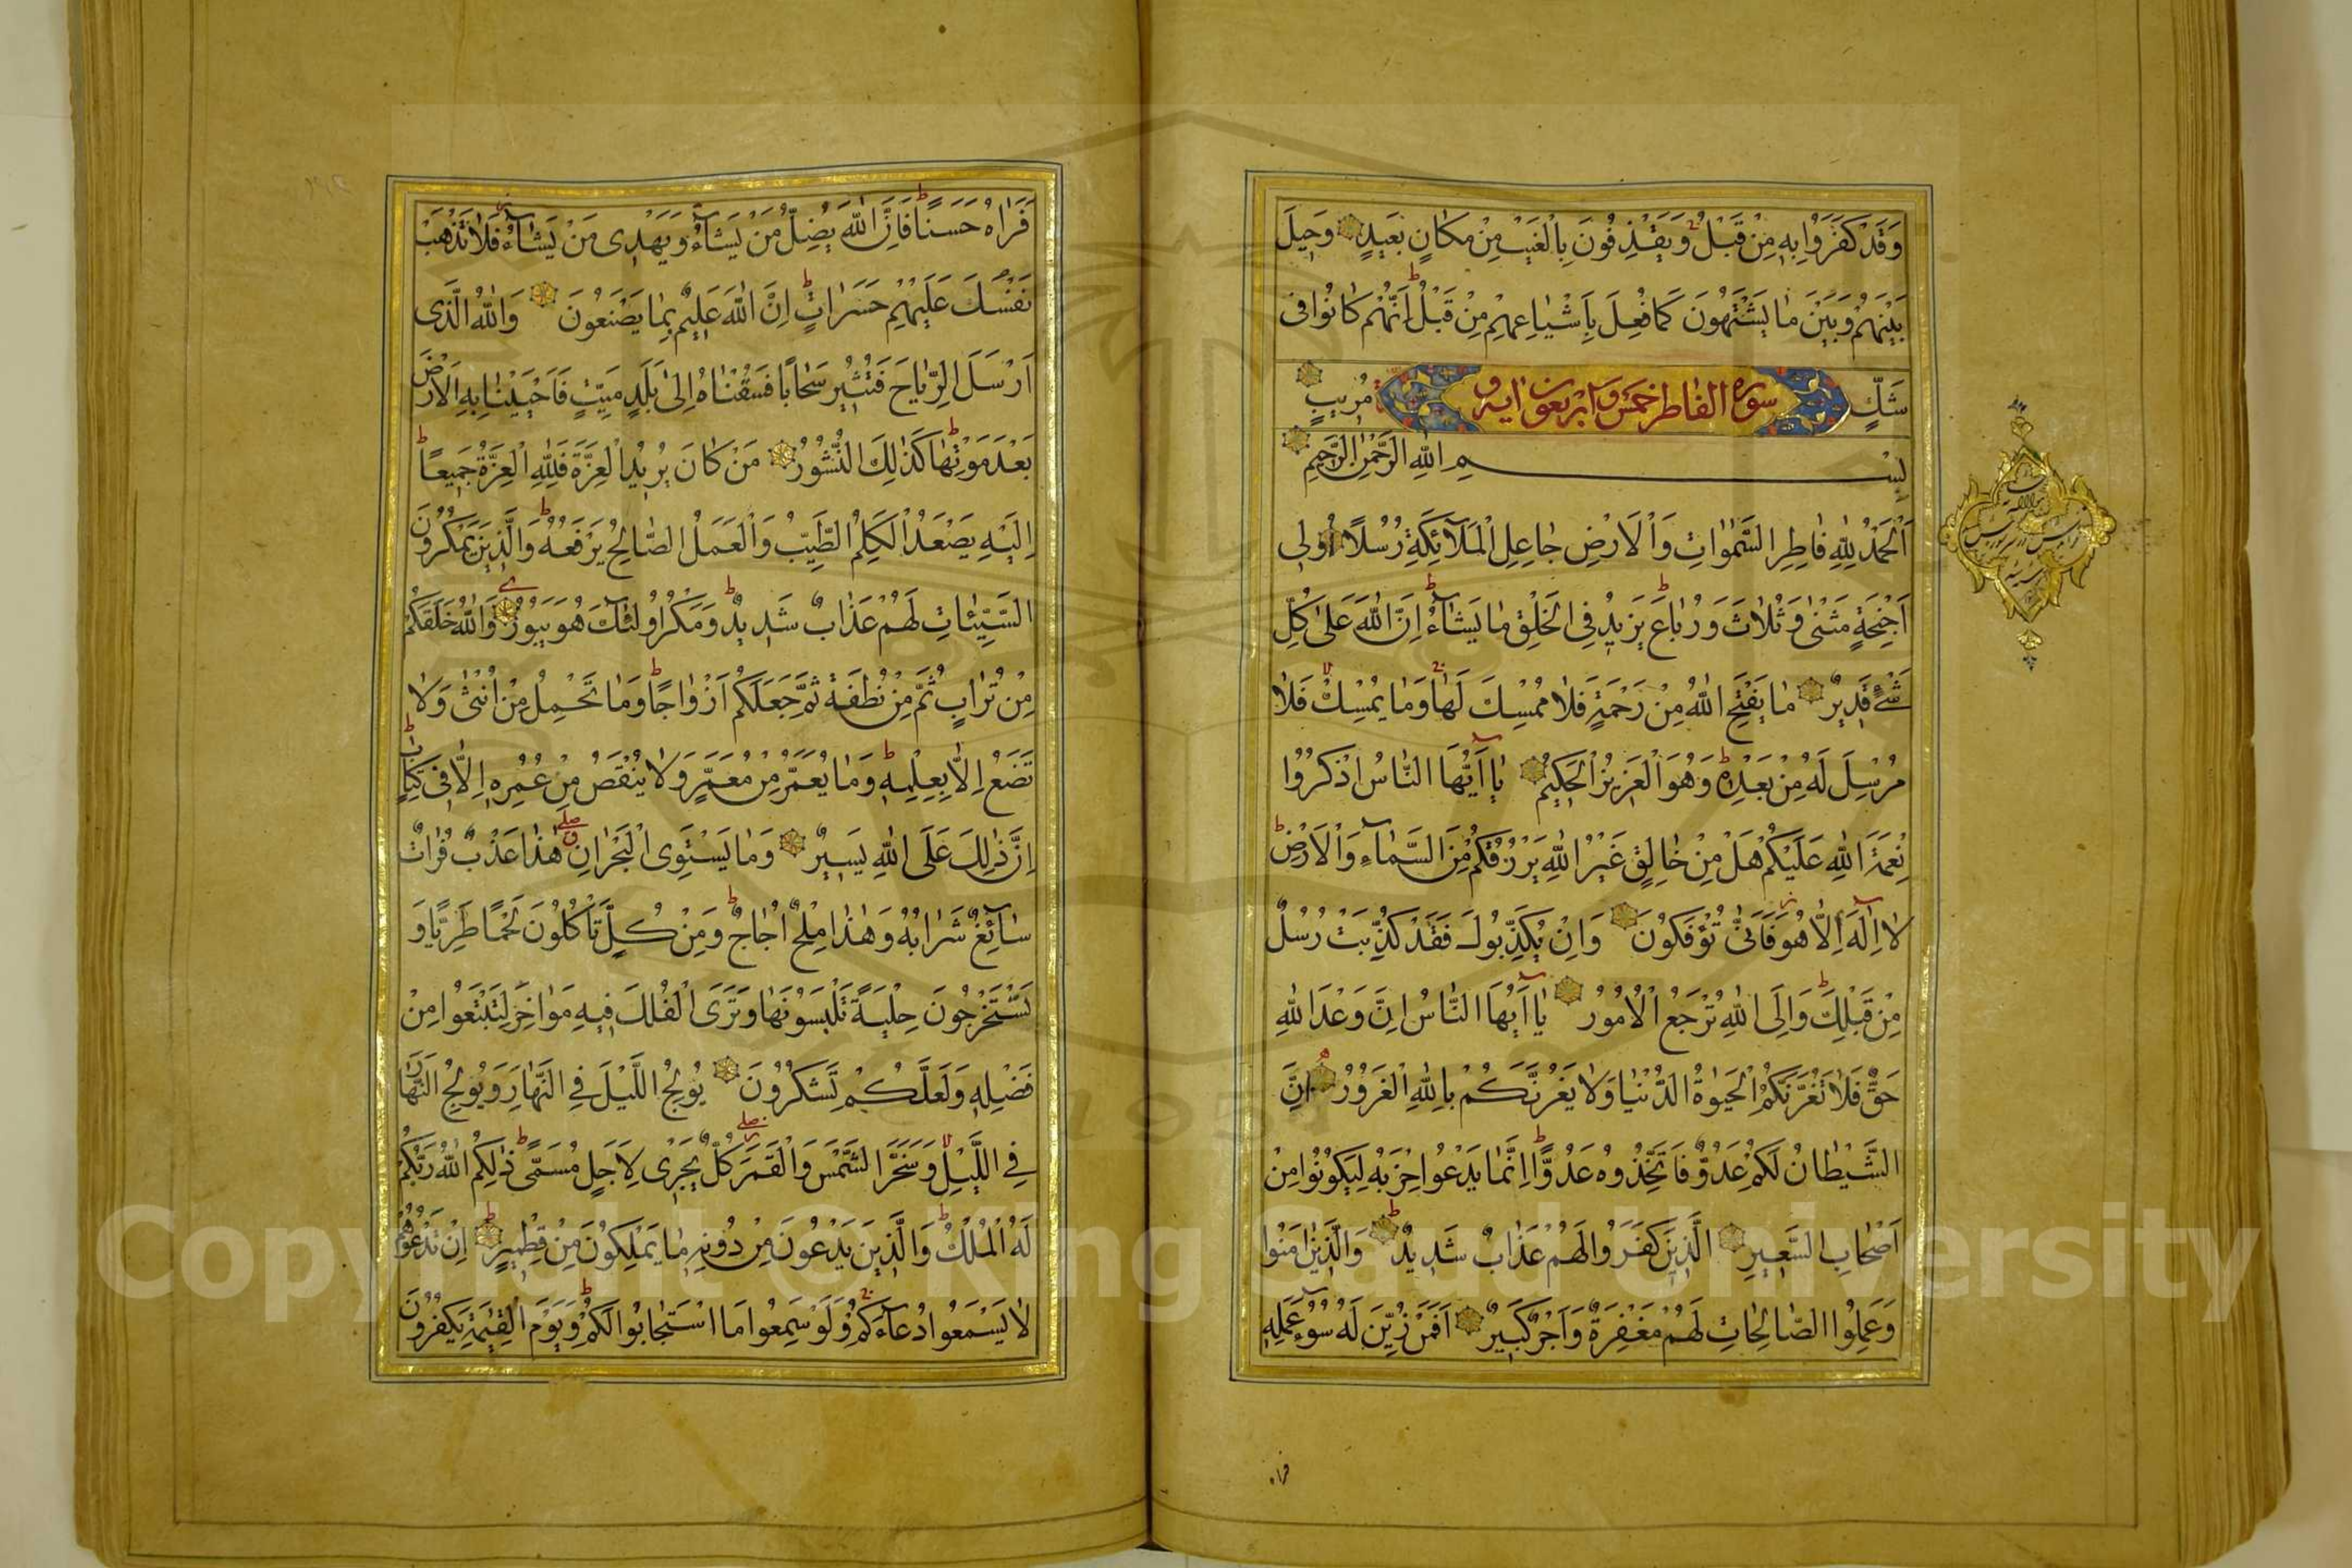 وَقَدْ كَفَرُوا بِهِ مِنْ قَبْلُ وَيَقْذِفُونَ بِالْغَيْبِ مِنْ مَكَانٍ بَعِيدٍ وَحِيلَ
بَيْنَهُمْ وَبَيْنَ مَا يَشْتَهُونَ كَمَا فُعِلَ بِاَشْيَاعِهِمْ مِنْ قَبْلُ اِنَّهُمْ كَانُوا فِى
شَكٍّ مُرِيبٍ
سورة الفاطر خمس واربعون اية
بِسْمِ اللهِ الرَّحْمٰنِ الرَّحِيمِ
اَلْحَمْدُ لِلّٰهِ فَاطِرِ السَّمٰوَاتِ وَالْاَرْضِ جَاعِلِ الْمَلَآئِكَةِ رُسُلًا اُولِى
اَجْنِحَةٍ مَثْنٰى وَثُلَاثَ وَرُبَاعَ يَزِيدُ فِى الْخَلْقِ مَا يَشَآءُ اِنَّ اللهَ عَلٰى كُلِّ
شَىْءٍ قَدِيرٌ مَا يَفْتَحِ اللهُ مِنْ رَحْمَةٍ فَلَا مُمْسِكَ لَهَا وَمَا يُمْسِكْ فَلَا
مُرْسِلَ لَهُ مِنْ بَعْدِهِ وَهُوَ الْعَزِيزُ الْحَكِيمُ يَا اَيُّهَا النَّاسُ اذْكُرُوا
نِعْمَةَ اللهِ عَلَيْكُمْ هَلْ مِنْ خَالِقٍ غَيْرُ اللهِ يَرْزُقُكُمْ مِنَ السَّمَآءِ وَالْاَرْضِ
لَا اِلٰهَ اِلَّا هُوَ فَاَنّٰى تُؤْفَكُونَ وَاِنْ يُكَذِّبُوكَ فَقَدْ كُذِّبَتْ رُسُلٌ
مِنْ قَبْلِكَ وَاِلَى اللهِ تُرْجَعُ الْاُمُورُ يَا اَيُّهَا النَّاسُ اِنَّ وَعْدَ اللهِ
حَقٌّ فَلَا تَغُرَّنَّكُمُ الْحَيٰوةُ الدُّنْيَا وَلَا يَغُرَّنَّكُمْ بِاللهِ الْغَرُورُ اِنَّ
الشَّيْطَانَ لَكُمْ عَدُوٌّ فَاتَّخِذُوهُ عَدُوًّا اِنَّمَا يَدْعُوا حِزْبَهُ لِيَكُونُوا مِنْ
اَصْحَابِ السَّعِيرِ الَّذِينَ كَفَرُوا لَهُمْ عَذَابٌ شَدِيدٌ وَالَّذِينَ اٰمَنُوا
وَعَمِلُوا الصَّالِحَاتِ لَهُمْ مَغْفِرَةٌ وَاَجْرٌ كَبِيرٌ اَفَمَنْ زُيِّنَ لَهُ سُوٓءُ عَمَلِهِ
فراه
فَرَاٰهُ حَسَنًا فَاِنَّ اللهَ يُضِلُّ مَنْ يَشَآءُ وَيَهْدِى مَنْ يَشَآءُ فَلَا تَذْهَبْ
نَفْسُكَ عَلَيْهِمْ حَسَرَاتٍ اِنَّ اللهَ عَلِيمٌ بِمَا يَصْنَعُونَ وَاللهُ الَّذِى
اَرْسَلَ الرِّيَاحَ فَتُثِيرُ سَحَابًا فَسُقْنَاهُ اِلٰى بَلَدٍ مَيِّتٍ فَاَحْيَيْنَا بِهِ الْاَرْضَ
بَعْدَ مَوْتِهَا كَذٰلِكَ النُّشُورُ مَنْ كَانَ يُرِيدُ الْعِزَّةَ فَلِلّٰهِ الْعِزَّةُ جَمِيعًا
اِلَيْهِ يَصْعَدُ الْكَلِمُ الطَّيِّبُ وَالْعَمَلُ الصَّالِحُ يَرْفَعُهُ وَالَّذِينَ يَمْكُرُونَ
السَّيِّئَاتِ لَهُمْ عَذَابٌ شَدِيدٌ وَمَكْرُ اُولٰئِكَ هُوَ يَبُورُ وَاللهُ خَلَقَكُمْ
مِنْ تُرَابٍ ثُمَّ مِنْ نُطْفَةٍ ثُمَّ جَعَلَكُمْ اَزْوَاجًا وَمَا تَحْمِلُ مِنْ اُنْثٰى وَلَا
تَضَعُ اِلَّا بِعِلْمِهِ وَمَا يُعَمَّرُ مِنْ مُعَمَّرٍ وَلَا يُنْقَصُ مِنْ عُمُرِهِ اِلَّا فِى كِتَابٍ
اِنَّ ذٰلِكَ عَلَى اللهِ يَسِيرٌ وَمَا يَسْتَوِى الْبَحْرَانِ هٰذَا عَذْبٌ فُرَاتٌ
سَآئِغٌ شَرَابُهُ وَهٰذَا مِلْحٌ اُجَاجٌ وَمِنْ كُلٍّ تَأْكُلُونَ لَحْمًا طَرِيًّا وَ
تَسْتَخْرِجُونَ حِلْيَةً تَلْبَسُونَهَا وَتَرَى الْفُلْكَ فِيهِ مَوَاخِرَ لِتَبْتَغُوا مِنْ
فَضْلِهِ وَلَعَلَّكُمْ تَشْكُرُونَ يُولِجُ اللَّيْلَ فِى النَّهَارِ وَيُولِجُ النَّهَارَ
فِى اللَّيْلِ وَسَخَّرَ الشَّمْسَ وَالْقَمَرَ كُلٌّ يَجْرِى لِاَجَلٍ مُسَمًّى ذٰلِكُمُ اللهُ رَبُّكُمْ
لَهُ الْمُلْكُ وَالَّذِينَ يَدْعُونَ مِنْ دُونِهِ مَا يَمْلِكُونَ مِنْ قِطْمِيرٍ اِنْ تَدْعُوهُمْ
لَا يَسْمَعُوا دُعَآءَكُمْ وَلَوْ سَمِعُوا مَا اسْتَجَابُوا لَكُمْ وَيَوْمَ الْقِيٰمَةِ يَكْفُرُونَ
Copyright © King Saud University
1957